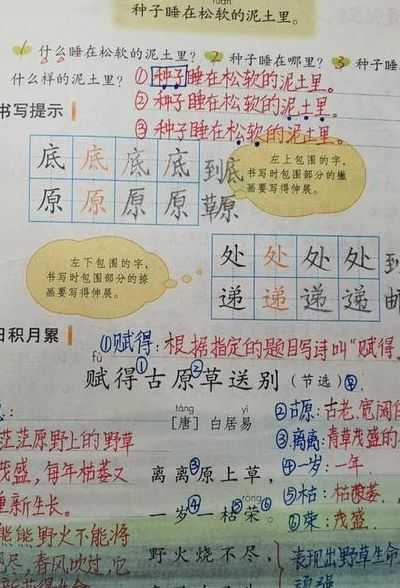 ruǎn
种子睡在松软的泥土里。
1 什么睡在松软的泥土里? 2 种子睡在哪里? 3 种子睡
什么样的泥土里?
①种子睡在松软的泥土里。
②种子睡在松软的泥土里。
③种子睡在松软的泥土里。
书写提示
底 底 底 底 到底
原 原 原 原 草原
左上包围的字,
书写时包围部分的撇
画要写得伸展。
左下包围的字,
书写时包围部分的捺
画要写得伸展。
处 处 处 处 到
递 递 递 递 邮
日积月累
①赋得:根据指定的题目写诗叫"赋得
fù
赋得①古原②草送别(节选)
táng yì
[唐] 白居易
②古原:古老,宽阔的
茫茫原野上的野草
③离离:青草茂盛的
茂盛,每年枯萎又
离离③原上草,
④一岁:一年.
重新生长。
⑤枯:枯萎.
róng
一岁④一枯⑤荣⑥。
⑥荣:茂盛.
熊熊野火不能将
野火烧不尽,
表现出野草生命
尽,春风吹过,它
顽强